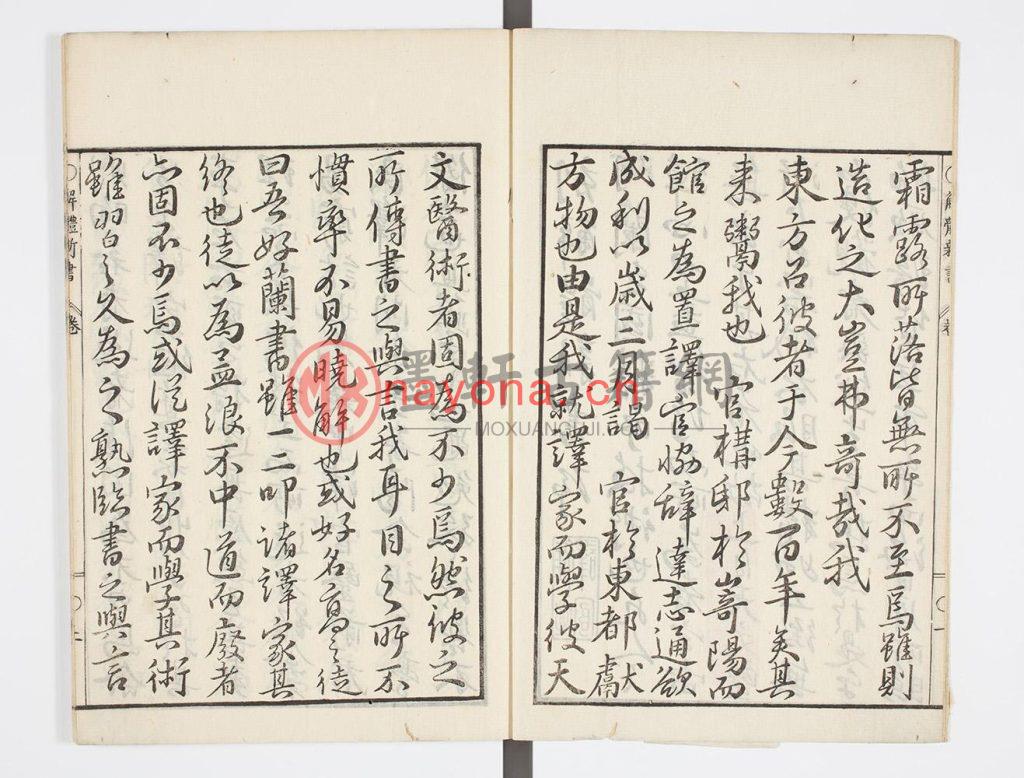 霜露所落皆無所不至焉雖則
造化之大豈弗奇哉我
東方召彼者于今數百年矣其
来鬻我也 官構邸於嵜陽而
館之為置譯官協辭達志通欲
成利以歲三月謁 官於東都獻
方物也由是我就譯家而學彼天
文醫術者固為不少焉然彼之
所傳書之與言我耳目之所不
慣率不易曉解也或好名高之徒
曰吾好蘭書雖一二叩諸譯家其
終也徒以為孟浪不中道而廢者
亦固不少焉或從譯家而學其術
雖習之久為之熟臨書之與言
○解體新書 卷
○二
○解體新書 卷
○一
墨軒古籍網
nayona.cn
MOXUANHUI.COM